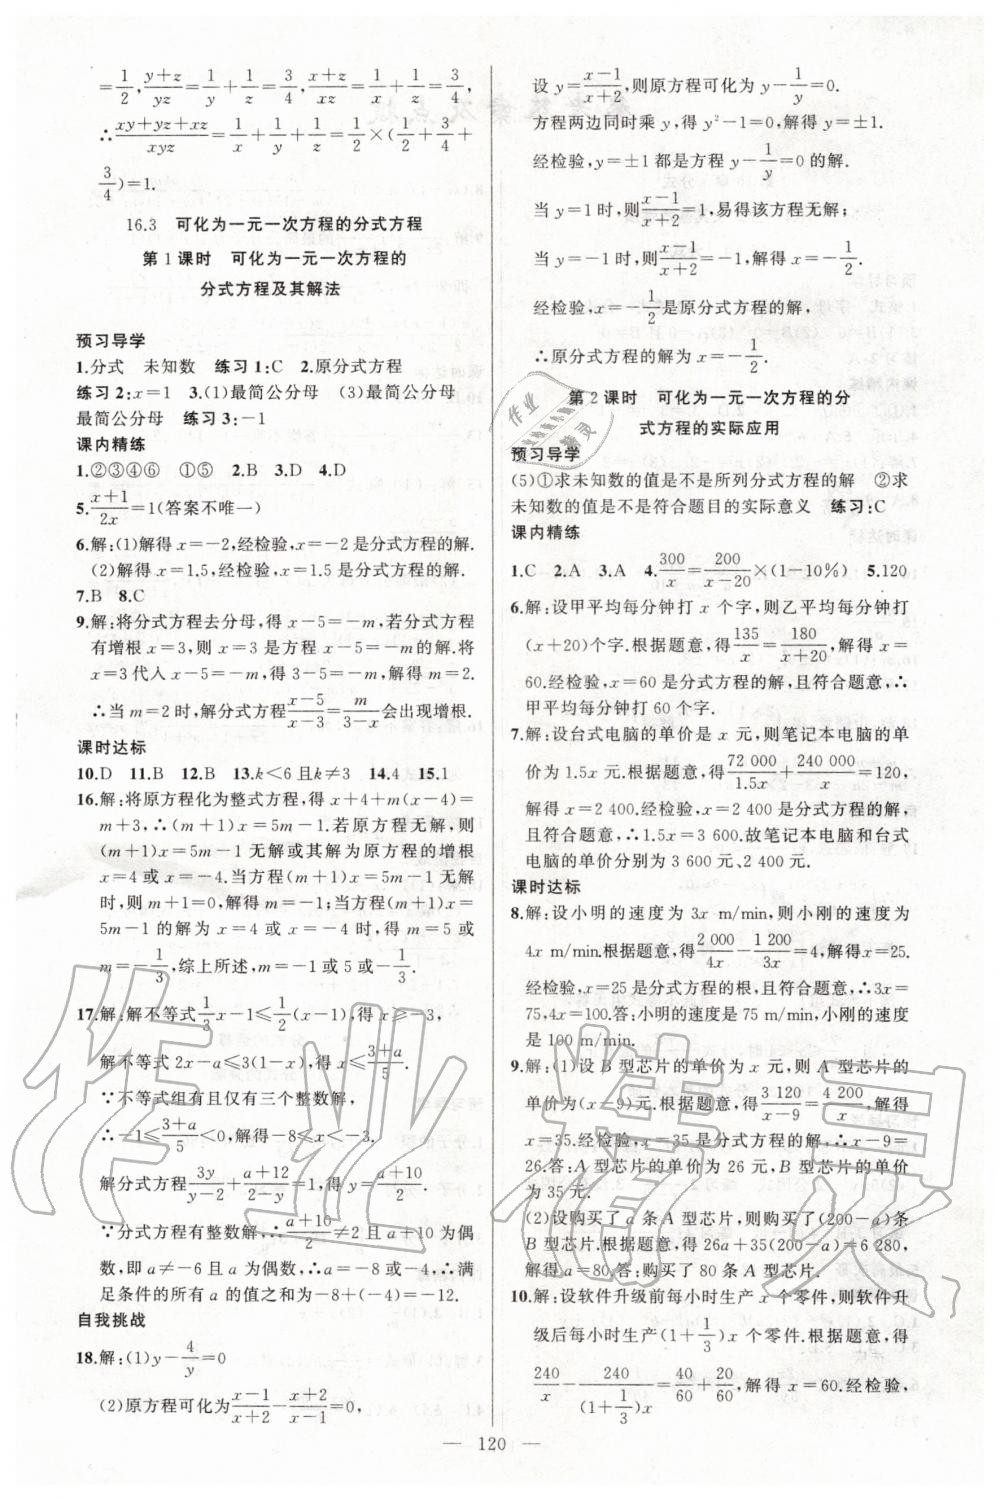 =1/2, (y+z)/(yz)=1/y+1/z=3/4, (x+z)/(xz)=1/x+1/z=3/4,
∴(xy+yz+xz)/(xyz)=1/x+1/y+1/z=1/2×(1/2+3/4+
3/4)=1.
16.3 可化为一元一次方程的分式方程
第1课时 可化为一元一次方程的
分式方程及其解法
预习导学
1.分式 未知数 练习1:C 2.原分式方程
练习2:x=1 3.(1)最简公分母 (3)最简公分母
最简公分母 练习3:-1
课内精练
1.②③④⑥ ①⑤ 2.B 3.D 4.D
5.(x+1)/(2x)=1(答案不唯一)
6.解:(1)解得x=-2,经检验,x=-2是分式方程的解.
(2)解得x=1.5,经检验,x=1.5是分式方程的解.
7.B 8.C
9.解:将分式方程去分母,得x-5=-m,若分式方程
有增根x=3,则x=3是方程x-5=-m的解.将
x=3代入x-5=-m,得3-5=-m,解得m=2.
∴当m=2时,解分式方程(x-5)/(x-3)=m/(3-x)会出现增根.
课时达标
10.D 11.B 12.B 13.k<6且k≠3 14.4 15.1
16.解:将原方程化为整式方程,得x+4+m(x-4)=
m+3,∴(m+1)x=5m-1.若原方程无解,则
(m+1)x=5m-1无解或其解为原方程的增根
x=4或x=-4.当方程(m+1)x=5m-1无解
时,则m+1=0,解得m=-1;当方程(m+1)x=
5m-1的解为x=4或x=-4时,得m=5或
m=-1/3,综上所述,m=-1或5或-1/3.
17.解:解不等式1/3x-1≤1/2(x-1),得x≥-3,
解不等式2x-a≤3(1-x),得x≤(3+a)/5.
∵不等式组有且仅有三个整数解,
∴-1≤(3+a)/5<0,解得-8≤x<-3.
解分式方程3y/(y-2)+(a+12)/(2-y)=1,得y=(a+10)/2.
∵分式方程有整数解,∴(a+10)/2≠2且a+10为偶
数,即a≠-6且a为偶数,∴a=-8或-4,∴满
足条件的所有a的值之和为-8+(-4)=-12.
自我挑战
18.解:(1)y-4/y=0
(2)原方程可化为(x-1)/(x+2)-(x+2)/(x-1)=0,
设y=(x-1)/(x+2),则原方程可化为y-1/y=0.
方程两边同时乘y,得y²-1=0,解得y=±1.
经检验,y=±1都是方程y-1/y=0的解.
当y=1时,则(x-1)/(x+2)=1,易得该方程无解;
当y=-1时,则(x-1)/(x+2)=-1,解得x=-1/2.
经检验,x=-1/2是原分式方程的解,
∴原分式方程的解为x=-1/2.
第2课时 可化为一元一次方程的分
式方程的实际应用
预习导学
(5)①求未知数的值是不是所列分式方程的解 ②求
未知数的值是不是符合题目的实际意义 练习:C
课内精练
1.C 2.A 3.A 4.300/x=200/(x-20)×(1-10%) 5.120
6.解:设甲平均每分钟打x个字,则乙平均每分钟打
(x+20)个字.根据题意,得135/x=180/(x+20),解得x=
60.经检验,x=60是分式方程的解,且符合题意,∴
甲平均每分钟打60个字.
7.解:设台式电脑的单价是x元,则笔记本电脑的单
价为1.5x元.根据题意,得72 000/1.5x+240 000/x=120,
解得x=2 400.经检验,x=2 400是分式方程的解,
且符合题意,∴1.5x=3 600.故笔记本电脑和台式
电脑的单价分别为3 600元、2 400元.
课时达标
8.解:设小明的速度为3x m/min,则小刚的速度为
4x m/min.根据题意,得2 000/4x-1 200/3x=4,解得x=25.
经检验,x=25是分式方程的根,且符合题意,∴3x=
75,4x=100.答:小明的速度是75 m/min,小刚的速度
是100 m/min.
9.解:(1)设B型芯片的单价为x元,则A型芯片的
单价为(x-9)元.根据题意,得3 120/(x-9)=4 200/x,解得
x=35.经检验,x=35是分式方程的解,∴x-9=
26.答:A型芯片的单价为26元,B型芯片的单价
为35元.
(2)设购买了a条A型芯片,则购买了(200-a)条
B型芯片.根据题意,得26a+35(200-a)=6 280,
解得a=80.答:购买了80条A型芯片.
10.解:设软件升级前每小时生产x个零件,则软件升
级后每小时生产(1+1/3)x个零件.根据题意,得
240/x-240/((1+1/3)x)=40/60+20/60,解得x=60.经检验,
— 120 —
作业精灵